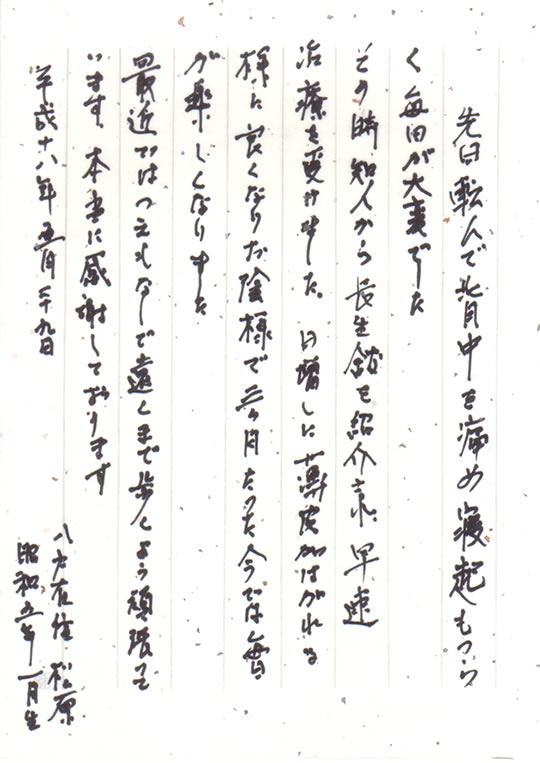 先日転んで背中を痛め寝起もつら
く毎日が大変でした
その時知人から長生館を紹介され早速
治療を受けました。日増しに薄皮がはがれる
様に良くなりお陰様で三ヶ月たった今では毎日
が楽しくなりました
最近ではつえもなしで遠くまで歩くよう頑張って
います。本当に感謝しております
平成十八年五月二十九日
八戸在住 松原
昭和五年一月生